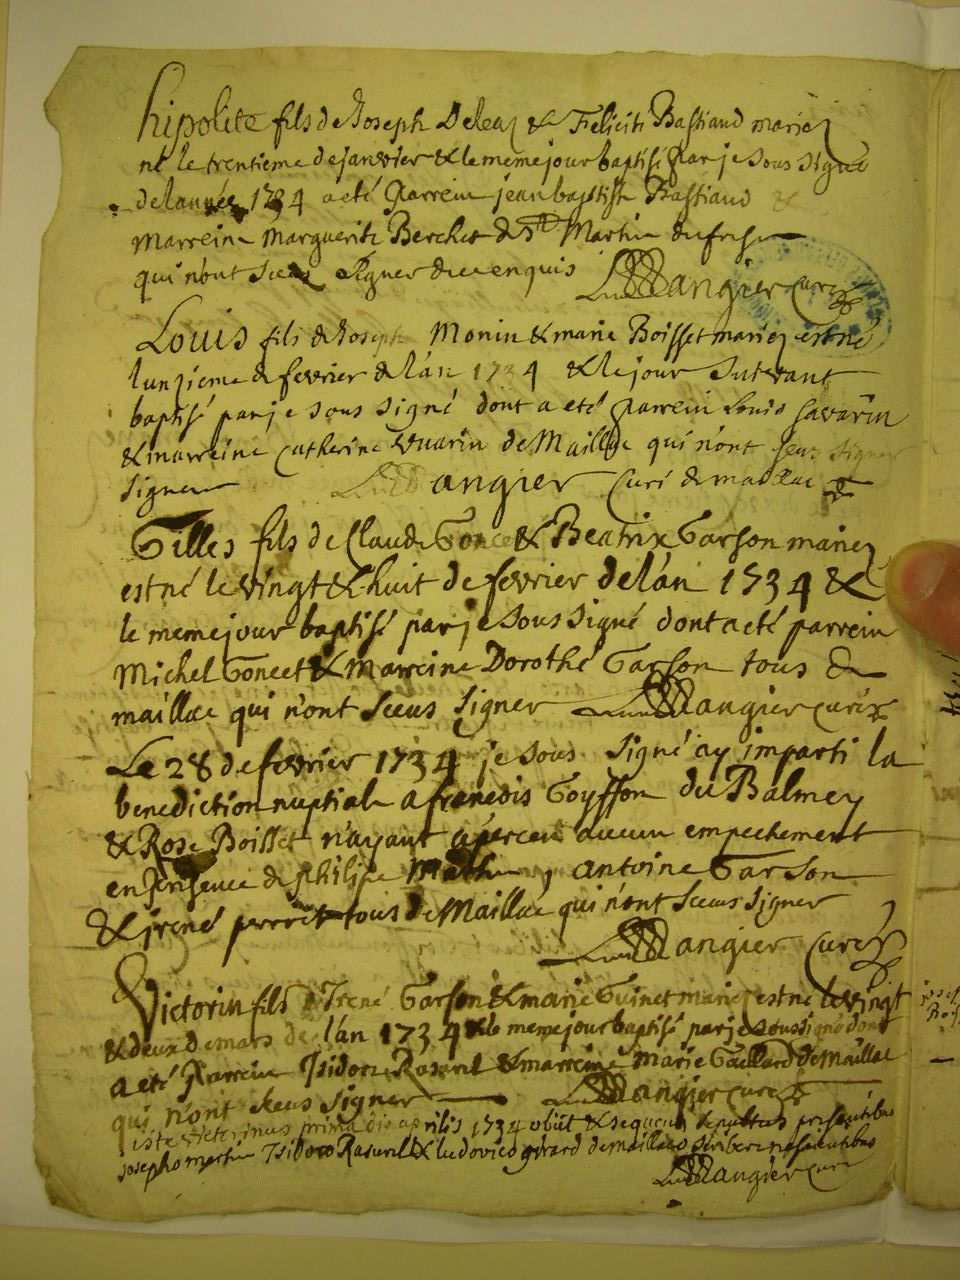 hipolite fils de Joseph Deleaz & Felicité Bastiand mariez
né le trentieme de janvier & le meme jour baptisé par je sous signé
de lannée 1734 a eté parrein jean baptiste Bastiand &
marreine marguerite Berchet de St Martin du fresne
qui n'ont sceus signer de ce enquis Dangier curé
Louis fils de Joseph Monin & marie Boisset mariez est né
lunzieme de fevrier de l'an 1734 & le jour suivant
baptisé par je sous signé dont a eté parrein Louis savarin
& marreine catherine vuarin de Maillac qui n'ont sceus signer
signer Dangier curé de maillac
Gilles fils de Claude Goncet & Beatrix Garson mariez
est né le vingt & huit de fevrier de l'an 1734 &
le meme jour baptisé par je sous signé dont a eté parrein
Michel Goncet & Marreine Dorothé Garson tous de
maillac qui n'ont sceus signer Dangier curé
Le 28 de fevrier 1734 je sous signé ay imparti la
benediction nuptiale a francois Goyffon du Balmey
& Rose Boisset n'ayant aperceu aucun empechement
en presence de philipe antoine Garson
& jrené perret tous de Maillac qui n'ont sceus signer
Dangier curé
Victorin fils d'Irené Garson & marie Guinet mariez est né le vingt
& deux de mars de l'an 1734 & le meme jour baptisé par je soussigné dont
a eté parrein Isidore Ravet & marreine marie Gaillard de maillac
qui n'ont sceus signer Dangier curé
iste victorinus prima die aprilis 1734 obiit & sequenti sepultus presentibus
josepho martin Isidoro & ludovico girard de maillac scribere nescientibus
Dangier curé